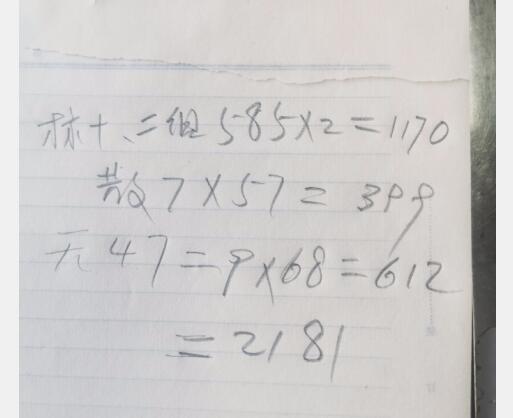 林十、二组585×2=1170
散7×57=399
天47=9×68=612
=2181